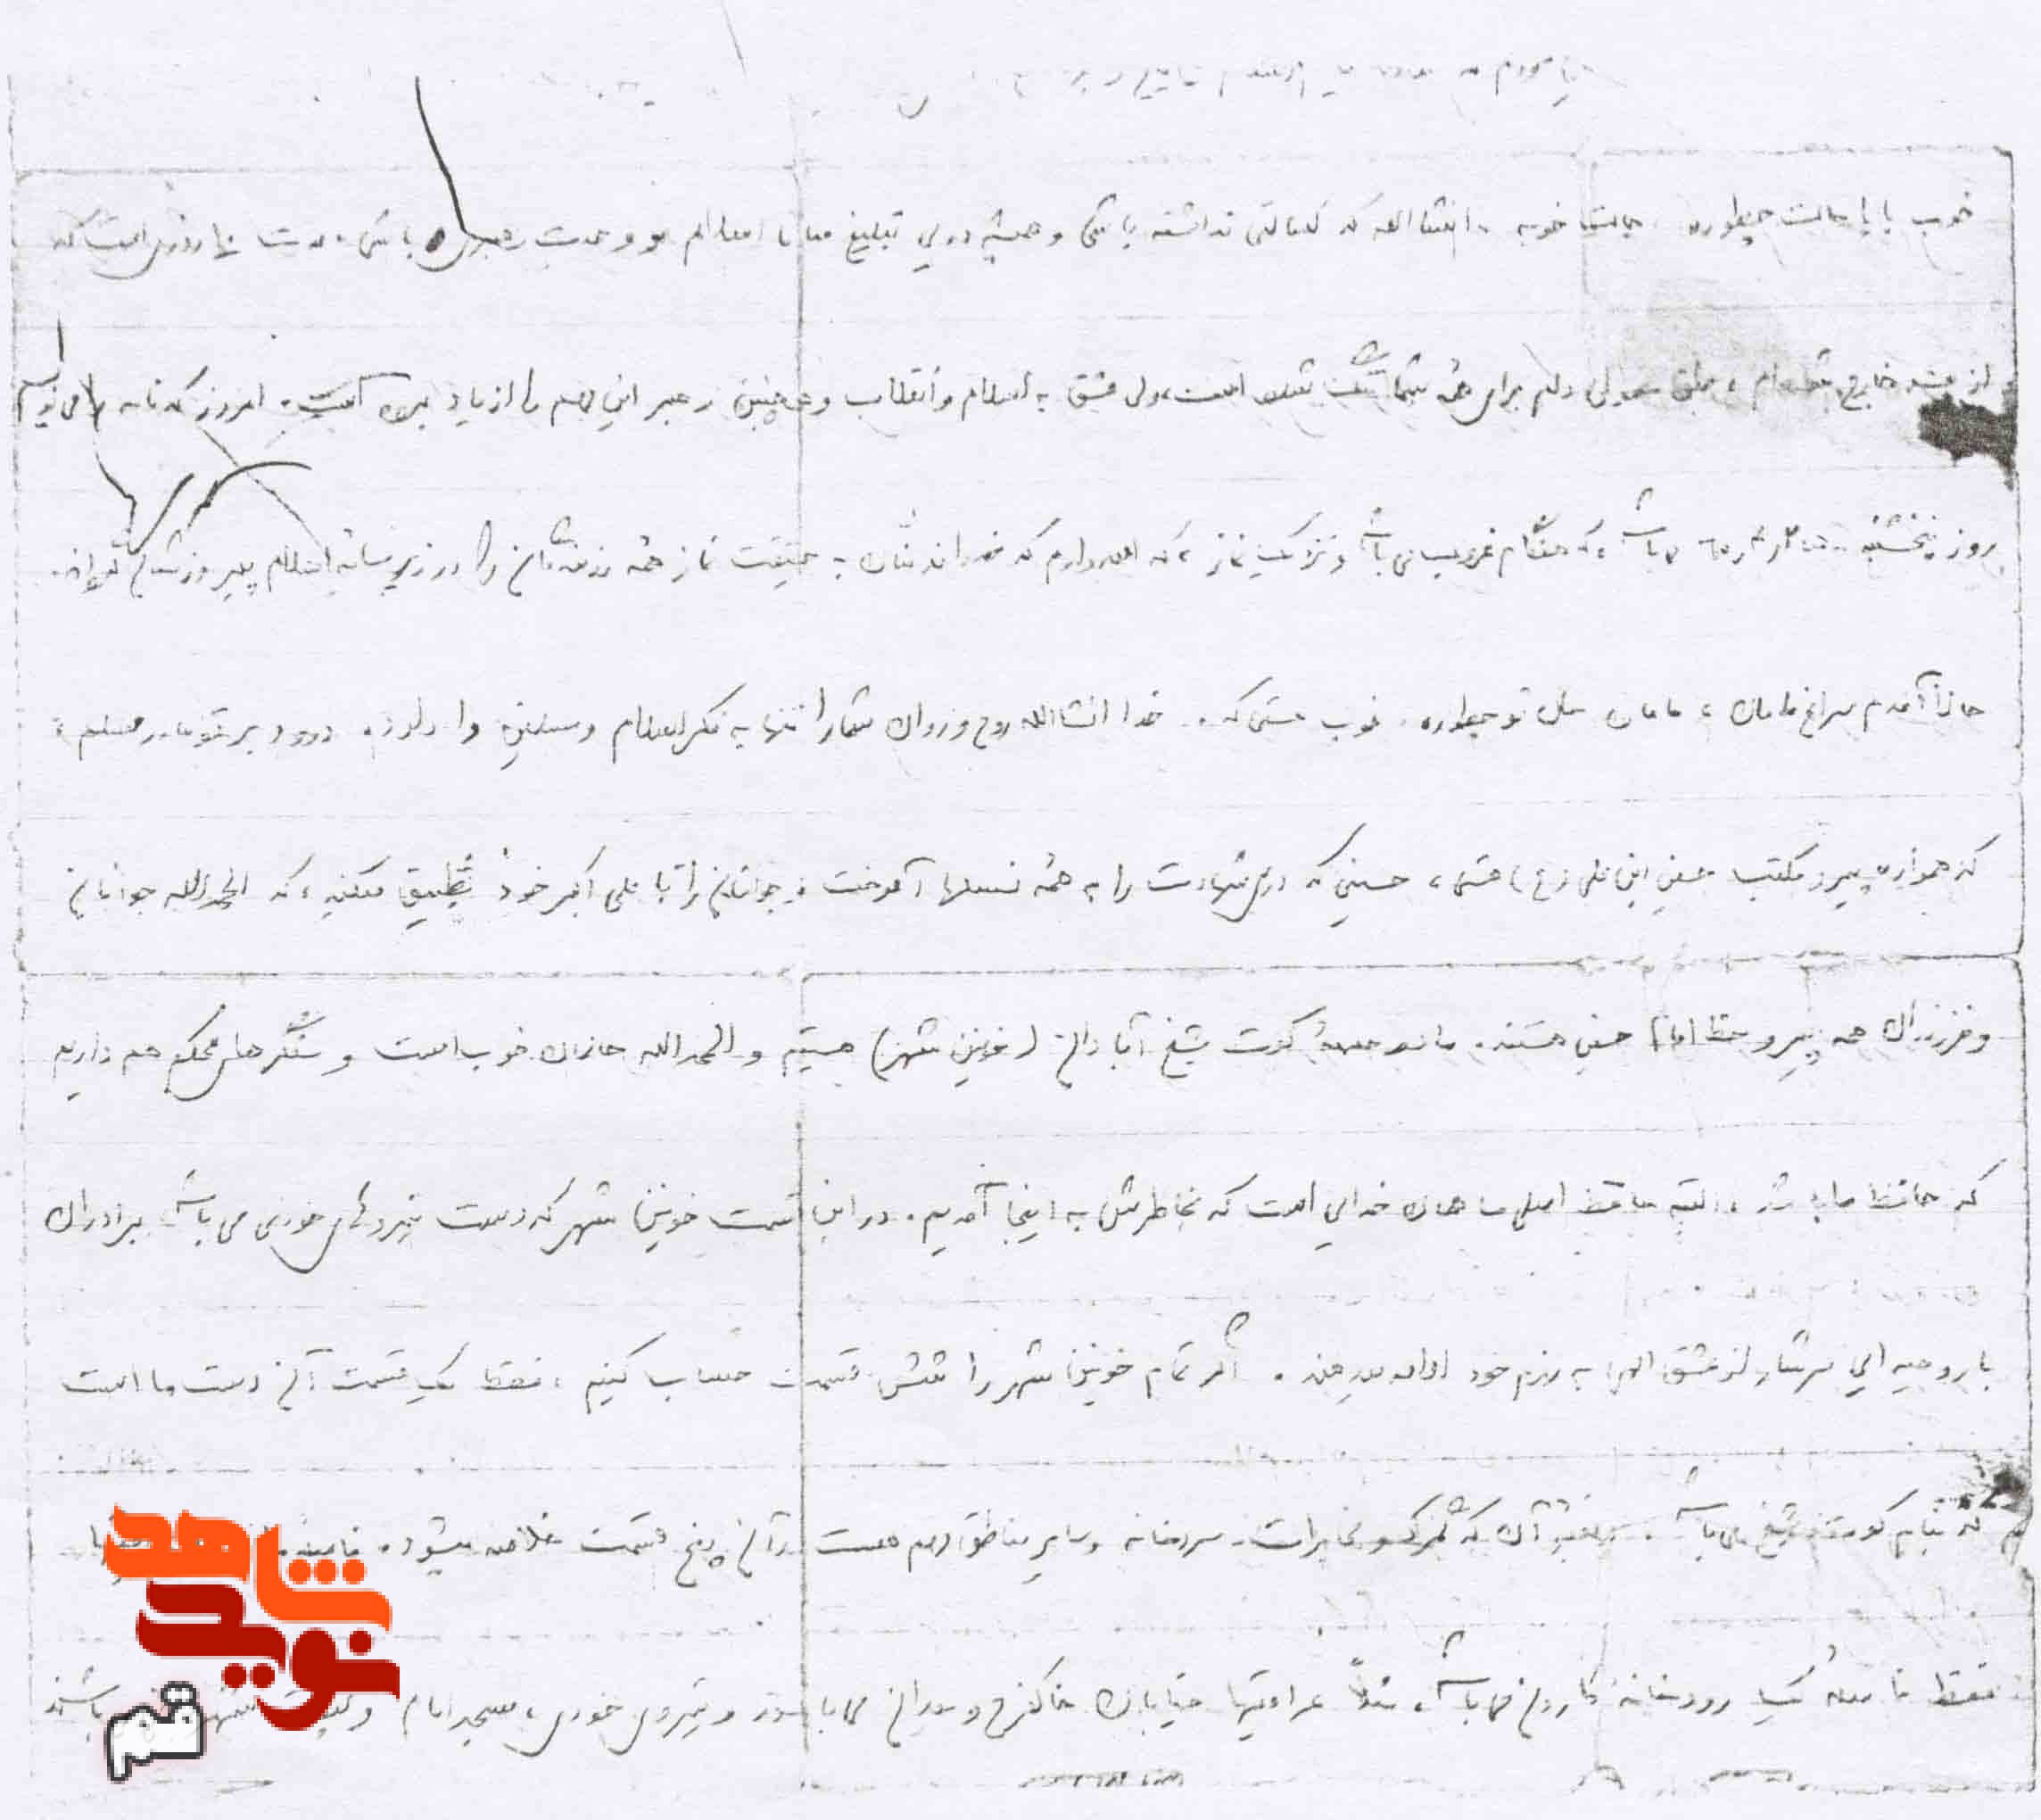 خوب بابا حالت چطوره حالت خوبه . انشا الله که کسالتی نداشته باشی و همیشه در پی تبلیغ اسلام و وحدت رهبری باشی . مدت روزی است که
از خارج شده‌ام ، دلم برای همه شما تنگ شده است ، ولی عشق به اسلام و انقلاب و همچنین رهبر این مهم را از یاد برده است . امروز که نامه را می نویسم
روز پنجشنبه می باشد ، که هنگام غروب می باشد و نزدیک نماز ، که امیدوارم که خداوند به حقیقت نماز همه رزمندگان را در زیر سایه اسلام پیروزشان گرداند .
حالا آمدم سراغ مامان ، مامان حال تو چطوره . خوب هستی که . خدا انشاالله روح و روان شما را تنها به فکر اسلام و مسلمین وا دارد . درود بر تو مادر مسلم ،
که همواره پیرو مکتب حسین ابن علی (ع) هستی ، حسینی که درس شهادت را به همه نسلها آموخت . جوانان را با علی اکبر خود تطبیق میکنید ، که الحمدالله جوانان
و فرزندان همه پیرو خط امام حسین هستند . ما در جبهه کوت شیخ آبادان (خونین شهر) هستیم و الحمدالله حالمان خوب است و سنگرهای محکم هم داریم
که حافظ ما باشد ، البته حافظ اصلی ما همان خدایی است که بخاطرش به اینجا آمدیم . در این قسمت خونین شهر که دست نیروهای خودی می باشد برادران
با روحیه ای سرشار از عشق الهی به رزم خود ادامه میدهند . اگر تمام خونین شهر را شش قسمت حساب کنیم ، فقط یک قسمت آن دست ما است
که بنام کوت شیخ می باشد . بقیه آن که گمرک و مخابرات سردخانه و سایر مناطق هم هست در آن پنج قسمت خلاصه میشود . فاصله
فقط فاصله یک رودخانه کارون می باشد ، مثلاً عراقیها خیابان می باشند و نیروی خودی ، مسجد امام و باشند
شاهد
نوید
قم